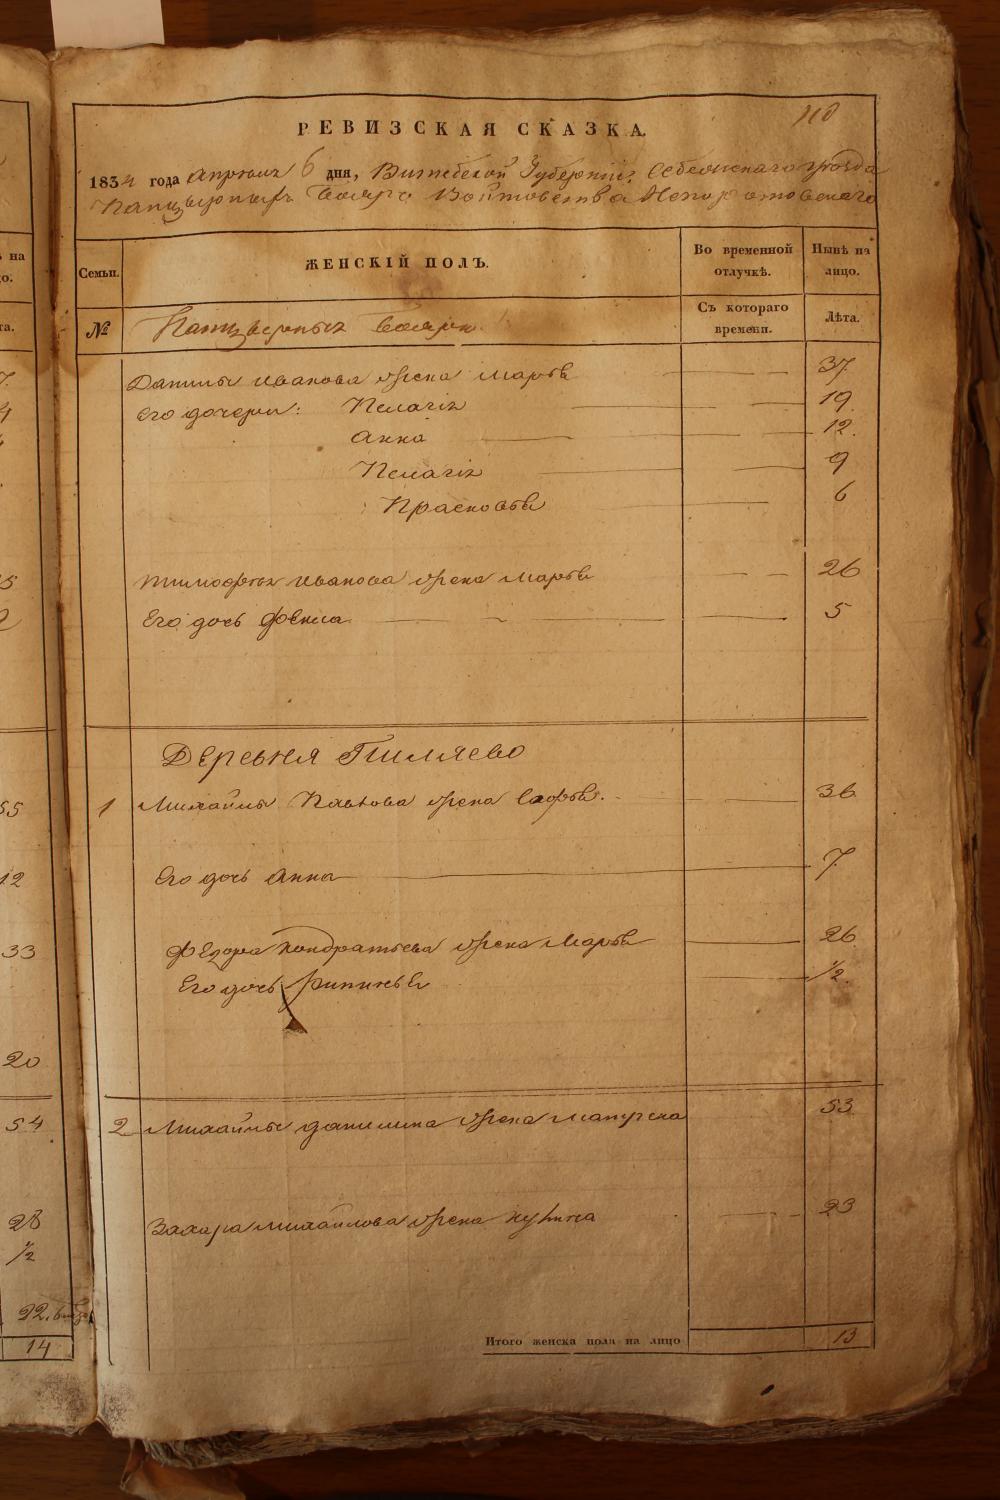 110
РЕВИЗСКАЯ СКАЗКА.
1834 года Апреля 6 дня, Витебской Губернии, Себежскаго уѣзда
Панцырныхъ Бояръ Войтовства
ѣ на
Семьи.
ЖЕНСКІЙ ПОЛЪ.
Во временной
отлучкѣ.
Нынѣ на
лицо.
цо.
№
Панцырныхъ Бояръ
Съ котораго
времени.
Лѣта.
та.
Данилы Иванова жена Марья 37
Его дочери: Пелагія 19.
Анна 12.
Пелагія 9
Прасковья 6
Тимофея Иванова жена Марья 26
Его дочь Фекла 5
Деревня Пиляево
1 Михайлы Павлова жена Софья. 36
Его дочь Анна 7
Федора Кондратьева жена Марья 26
Его дочь 1/2.
2 Михайлы Данилина жена 53
Захара Михайлова жена 23
Итого женска пола на лицо 13
55
12
33
20
54
28
1/2
22.
14